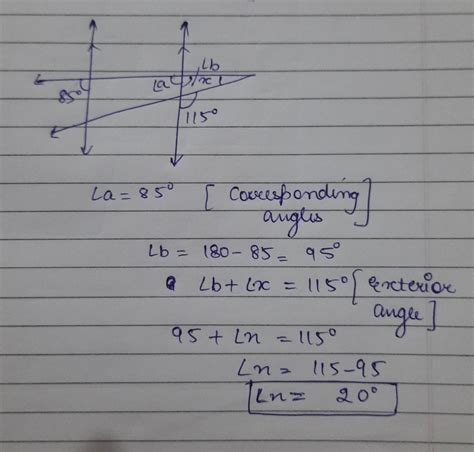 ∠b
85° ∠a x
115°
∠a = 85° [Corresponding
angles]
∠b = 180 - 85 = 95°
∠b + ∠x = 115° [exterior
angle]
95 + ∠x = 115°
∠x = 115 - 95
∠x = 20°